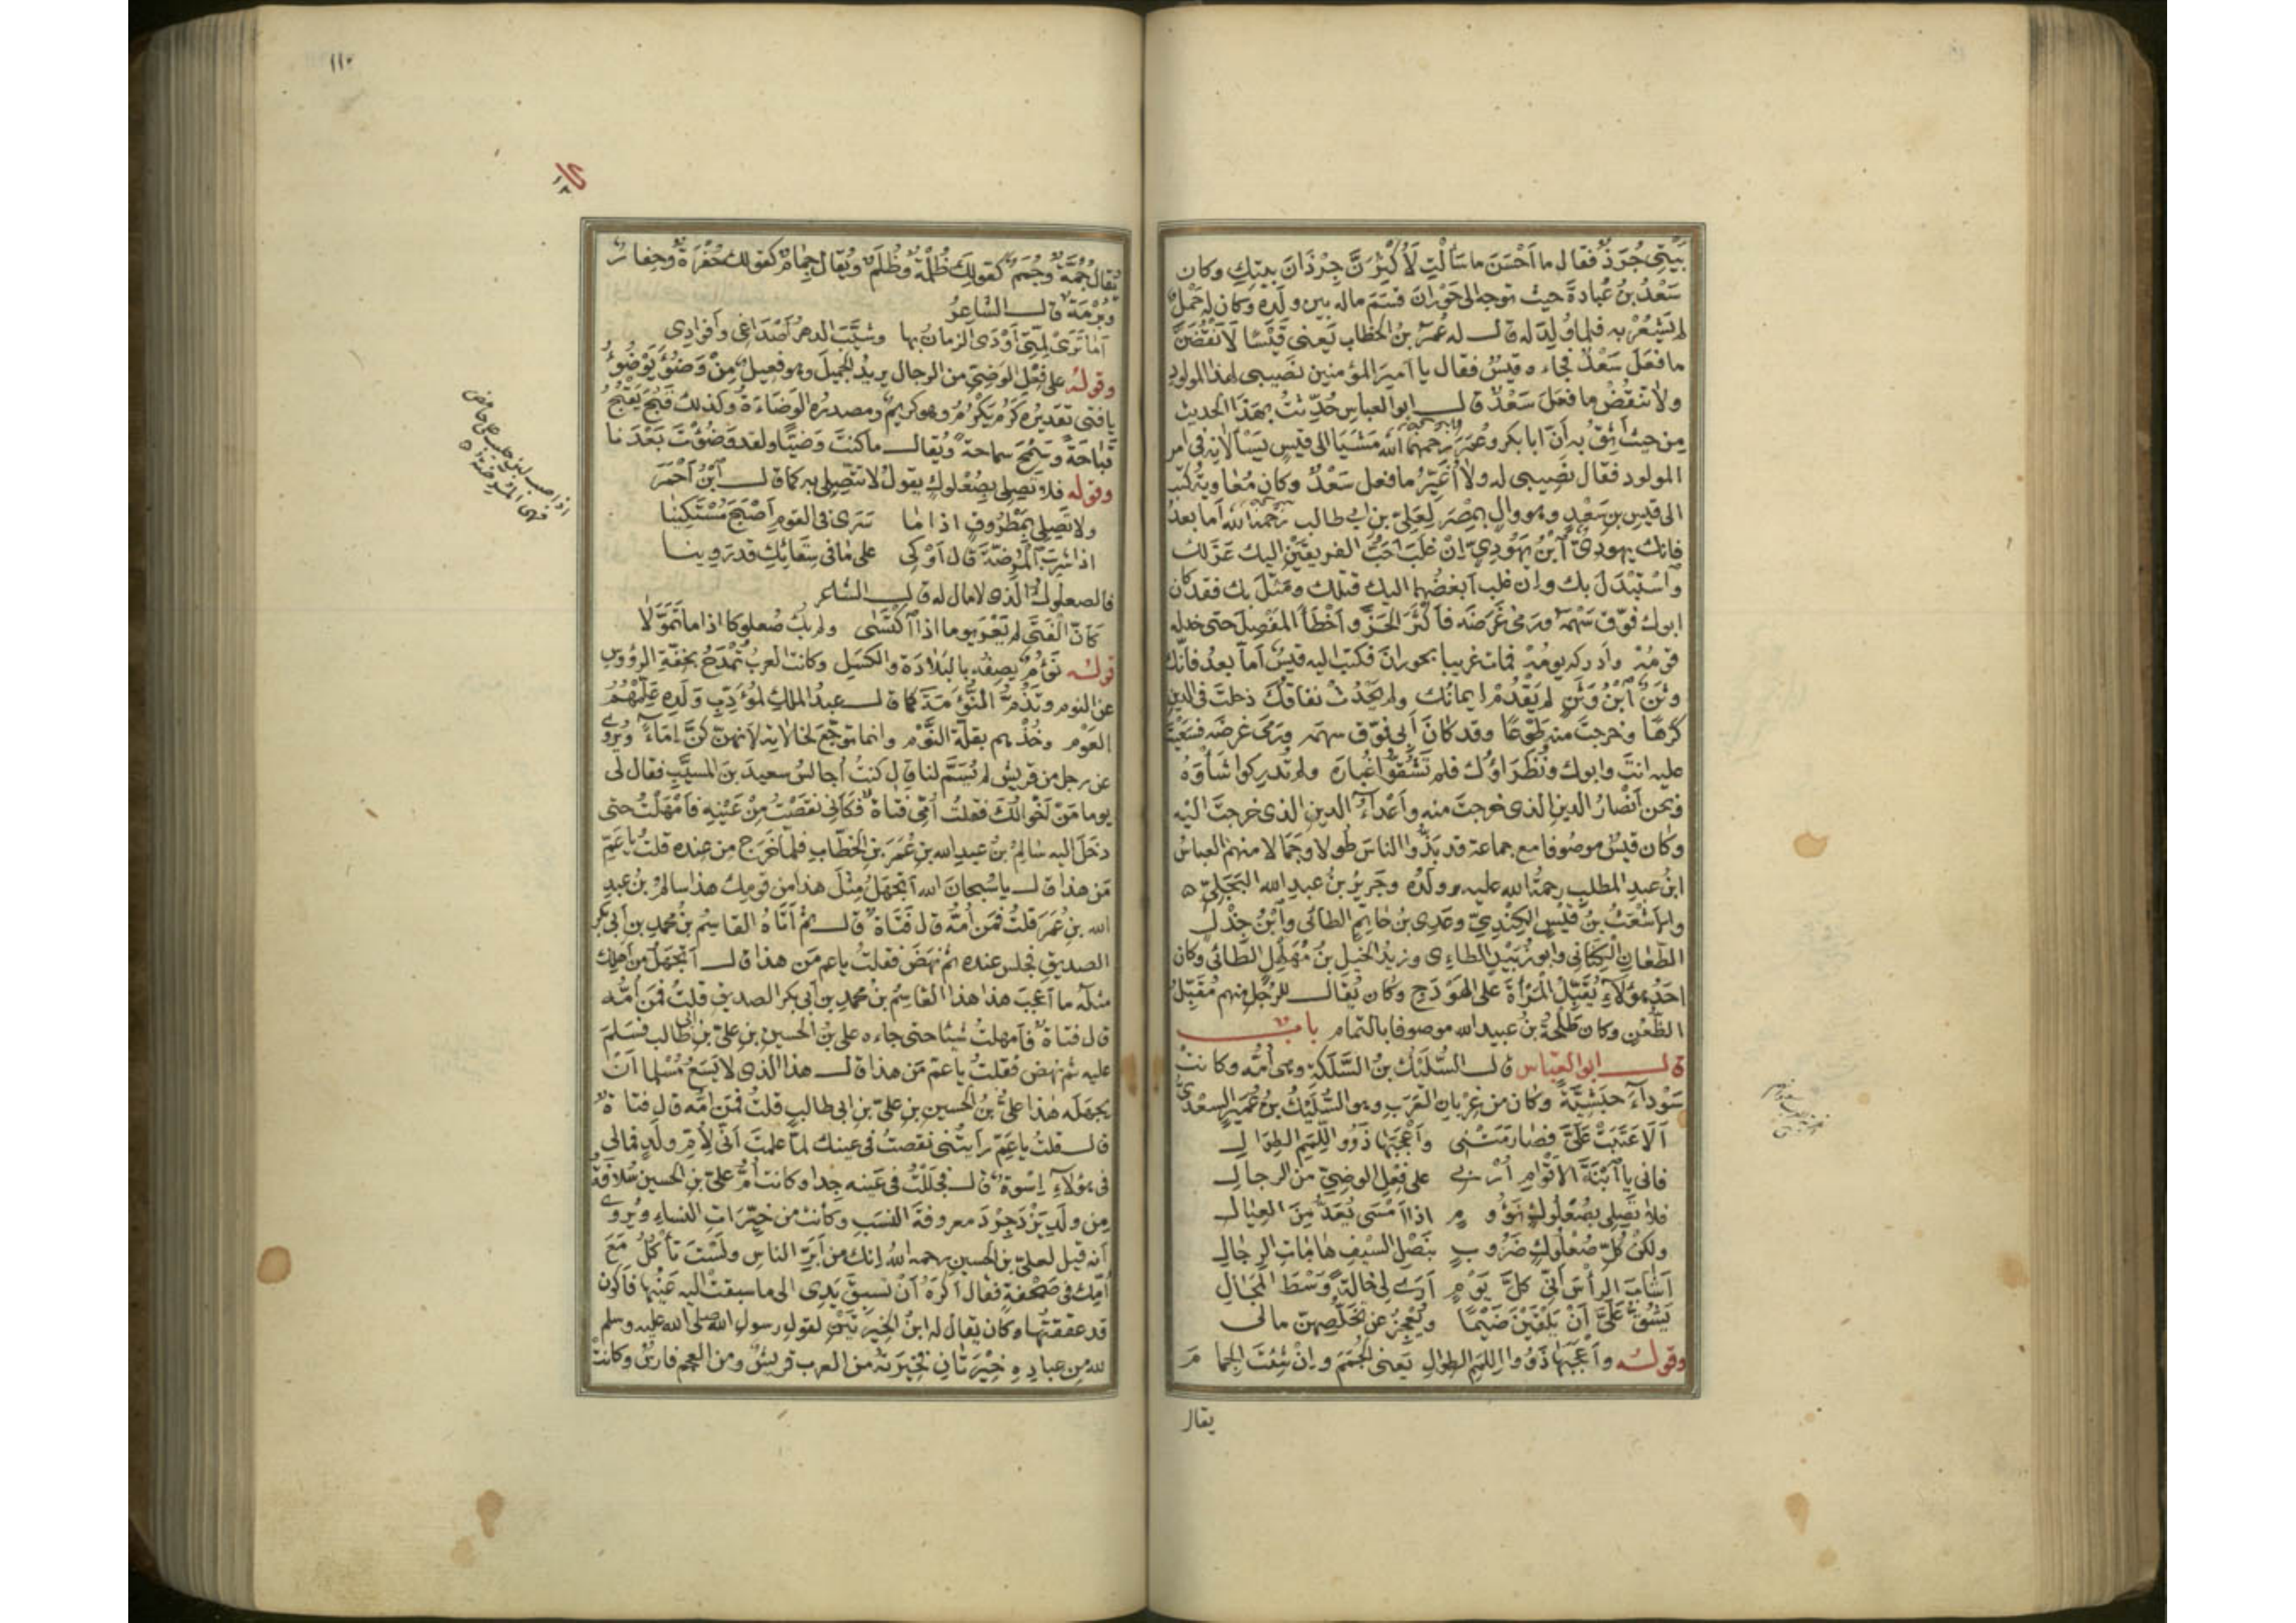 بَيْتِى جُرَذٌ فقال ما اَحْسَنَ ما سَاَلْتِ لَاُكْثِرَنَّ جِرْذَانَ بيتِكِ وكان
سَعْدُ بنُ عُبادةَ حيث توجه الى حَوْرانَ قسَّمَ ماله بين ولَدِه وكان له حَمْلٌ
لم يَشْعُرْ به فلما وُلِدَ له قال له عُمَرُ بنُ الخطاب يَعنى قَيْسًا لَاَنْقُضَنَّ
ما فعَلَ سَعْدٌ فجاءه قيسٌ فقال يا اَميرَ المؤمنين نَصيبى لهذا المولودِ
ولا تنقُضْ ما فعَلَ سَعْدٌ قال ابو العباس حُدِّثْتُ بهَذَا الحديث
مِن حيثُ اَثِقُ به اَنَّ ابا بكر وعُمَرَ رحمهما الله مَشَيَا الى قيسٍ يَسْاَلانِه فى اَمر
المولود فقال نَصيبى له ولا اُغَيِّرُ ما فعل سَعْدٌ وكان مُعاويةُ كتب
الى قيسِ بن سَعْدٍ وهو والٍ بمِصْرَ لِعَلِىّ بن ابى طالب رحمة الله اَما بعدُ
فانك يهودىٌّ ابْنُ يَهُودِىٍّ اِنْ غلَبَ اَحَبُّ الفريقَيْنِ اليك عَزَلك
وَاسْتَبْدَلَ بك وان غلب اَبغضُهما اليك قتَلك ومَثَّلَ بك فقد كان
ابوك فوَّق سَهْمَه ورَمَى غَرَضَه فاَكْثَرَ الحَزَّ واَخْطَاَ المَفْصِلَ حتى خذله
قومُه واَدركه يومُه فمات غريبا بحورانَ فكتب اليه قيسٌ اَما بعدُ فاِنّك
وثَنٌ ابْنُ وَثَنٍ لم يَقْدُمْ ايمانُك ولم يَحْدُثْ نفاقُكَ دخلتَ فى الدين
كَرْهًا وخرجتَ منه طَوْعًا وقد كانَ اَبى فوَّق سهمَه ورَمَى غرضَه فسَعَيْتَ
عليه انتَ وابوك ونُظَرَاؤك فلم تَشُقُّوا غُبارَه ولم تُدرِكوا شَأْوَهُ
ونحن اَنْصَارُ الدينِ الذى خرجتَ منه واَعْدَاءُ الدينِ الذى خرجتَ اليْه
وكان قيسٌ موصُوفا مع جماعة قد بَذُّوا الناسَ طُولا وجَمَالا منهمُ العباسُ
ابنُ عبدِ المطلبِ رحمةُ الله عليه وولَدُه وجَرِيرُ بنُ عبدِ الله البَجَلِىّ ه
والاَشْعَثُ بنُ قَيْسٍ الكِنْدِىّ وعَدِىُّ بن حَاتِمٍ الطائى وابْنُ جِذْلِ
الطِّعَانِ الكِنَانى وابو زُبَيْدٍ الطاءِى وزيدُ الخيلِ بنُ مُهَلْهِلٍ الطَّائى وكان
اَحَدُ هؤلاءِ يُقَبِّلُ المَرْأةَ على الهَوْدَجِ وكان يُقال للرجُلِ منهم مُقَبِّلُ
الظُّعُنِ وكان طَلْحَةُ بنُ عبيد الله موصوفا بالتمام باب
قال ابو العباس قال السُّلَيْكُ بنُ السُّلَكةِ وهى اُمُّه وكانتْ
سَوْدَاءَ حبَشيَّةً وكان من غِرْبانِ العَرَبِ وهو السُّلَيْكُ بنُ عُمَيْرٍ السعدىّ
اَلَا عَتَبَتْ عَلَىَّ فصَارَمَتْنى واَعْجَبَها ذَوُو اللِّمَم الطِوَال
فانى يا ابْنَةَ الاَقْوَامِ اُرْبى على فِعْلِ الوضِىّ من الرجال
فلا تَصِلى بصُعْلُوكٍ نَؤُوم اذا اَمْسَى يُعَدُّ مِنَ العِيَال
ولكنْ كلُّ صُعْلوكٍ ضَرُوب بنَصْلِ السَّيْفِ هَامَاتِ الرجال
اَشَابَ الرأسَ اَنّى كلَّ يَوْم اَرَى لى خالةً وَسْطَ الرجَالِ
يَشُقُّ عَلَىَّ اَنْ يَلْقَيْنَ ضَيْمًا ويُعْجِزُ عن تَخَلُّصِهنّ مالى
وقوله واَعْجَبَها ذَوُو اللِّمَم الطوال يَعنى الجُمَمَ واِنْ شئتَ الجِمَامَ
يقال
١١٢
يُقال جُمَّةٌ وجُمَمٌ كقولك ظُلْمَةٌ وظُلَمٌ ويُقال جِمَامٌ كقولك جُفْرَةٌ وجِفَارٌ
وبُرْمَةٌ قال الشاعرُ
اَمَا تَرَىْ لِمَّتِى اَوْدَى الزمانُ بها وشيَّبَ الدهرُ اَصْدَاغى واَفوادى
وقوله على فِعْلِ الوَضِىّ من الرجال يريدُ الجميلَ وهو فعيلٌ مِنْ وَضُؤَ يَوْضُؤُ
يا فتى تقديرُه كَرُم يَكْرُمُ وهو كريمٌ ومصدره الوَضَاءَةُ وكذلك قَبُحَ يَقْبُحُ
قَبَاحَةً وسَمُحَ سماحةً ويُقال ما كنتَ وَضيًّا ولقد وَضُؤْتَ بَعْدَنا
وقوله فلا تَصِلى بصُعْلوكٍ يقول لا تتَّصِلِى به كما قال ابْنُ اَحْمَرَ
ولا تَصِلى بمَطْروفٍ اذا ما تَسَرَّى فى القوم اَصْبَحَ مُسْتَكِينا
اذا شرِبَ المُرِضَّةَ قال اَوْكى على ما فى سِقَائِكِ قد رَوِينا
فالصعلوكُ الّذى لا مال له قال الشاعر
كاَنّ الفَتَى لم يَعْرَ يوما اذا اكْتَسَى ولم يكُ صُعلوكا اذا ما تَمَوَّلَا
قوله نَؤُومٍ يصِفُه بالبَلادَة والكَسَلِ وكانت العربُ تَمْدَحُ بخفّةِ الرؤوسِ
عنِ النوم وتَذُمُّ النُّؤَمَةَ كما قال عبدُ الملك لمُؤَدِّبِ ولَدِه عَلِّمْهُمُ
العَوْم وخُذْهم بقلّةِ النَّوْم وانما توجَّع لخالاتِه لاَنهنّ كنّ اِمَاءً ويُروَى
عن رجل من قريش لم يُسَمَّ لنا قال كنتُ اُجالسُ سعيدَ بنَ المسيَّب فقال لى
يوما مَنْ اَخْوالُكَ فقلتُ اُمِّى فتاةٌ فكَاَنّى نقَصْتُ مِنْ عَيْنِه فاَمْهَلْتُ حتى
دخَلَ اليه سَالمُ بنُ عبدِ الله بنِ عُمَرَ بنِ الخَطّابِ فلمّا خرَجَ من عنده قلتُ يا عَمّ
مَن هذا قال يا سُبْحانَ الله اَتجهَلُ مِثْلَ هذا من قومِك هذا سالمُ بنُ عبدِ
الله بنِ عُمَرَ قلتُ فمَن اُمُّه قال فتاةٌ قال ثم اَتَاهُ القاسِمُ بنُ محمدِ بنِ اَبى بكرٍ
الصديقِ فجلس عنده ثم نهَضَ فقلتُ يا عم مَن هذا قال اَتجهَلُ مِن اَهلِك
مثلَه ما اَعجبَ هذا هذا القاسِمُ بنُ محمدِ بنِ اَبى بكر الصديقِ قلتُ فمَنْ اُمُّه
قال فتاةٌ فاَمهلتُ شيئا حتى جاءه علىُّ بنُ الحسينِ بنِ علىّ بنِ ابى طالب فسَلَّمَ
عليه ثم نهَض فقلتُ يا عمّ مَن هذا قال هذا الذى لا يسَعُ مُسْلِما اَن
يجهَلَه هذا علىُّ بنُ الحسينِ بنِ علىّ بنِ ابى طالبٍ قلتُ فمَن اُمُّه قال فتاةٌ
قال قلتُ يا عَمّ رأيتُنى نقصتُ فى عينك لمّا علمتَ اَنّى لاُمّ ولَدٍ فمالى
فى هؤلاءِ اِسْوةٌ قال فجَلَلْتُ فى عَينِه جدا وكانت اُمُّ علىّ بنِ الحسين سُلافَةَ
مِن ولَدِ يَزْدَجِرْدَ معروفةَ النسَبِ وكانتْ من خيِّرَاتِ النساءِ ويُروَى
اَنه قيل لعلىّ بنِ الحسين رحمه الله اِنك من اَبَرِّ الناسِ ولَسْتَ تأكُلُ مَعَ
اُمِّك فى صَحْفةٍ فقال اَكرَهُ اَنْ تسبِقَ يَدِى الى ما سبقتْ اليه عَيْنُها فاَكون
قد عققتُها وكان يُقال له ابنُ الخِيَرَتَيْنِ لقولِ رسولِ الله صلى الله عليه وسلم
لله مِن عبادِه خِيَرَتَانِ فخِيَرَتُه من العرب قريشٌ ومن العجم فارسُ وكانتْ
اذا صب لبن حليب على حامض
فهى المرضة